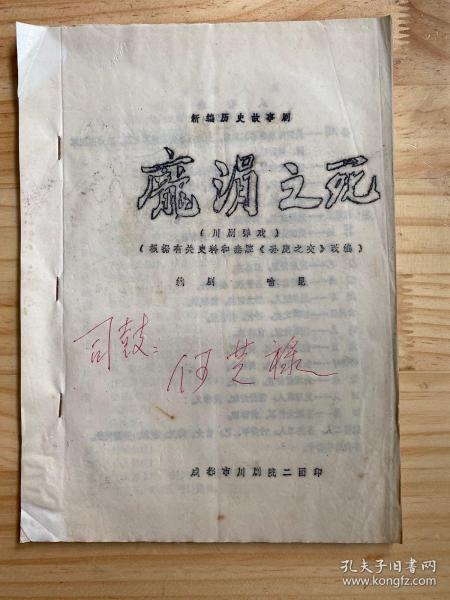 新编历史故事剧
庞涓之死
(川剧弹戏)
(根据有关史料和秦腔《孙庞之交》改编)
编剧
司鼓:何楚禄
成都市川剧院二团印
孔夫子旧书网
www.kongfz.com